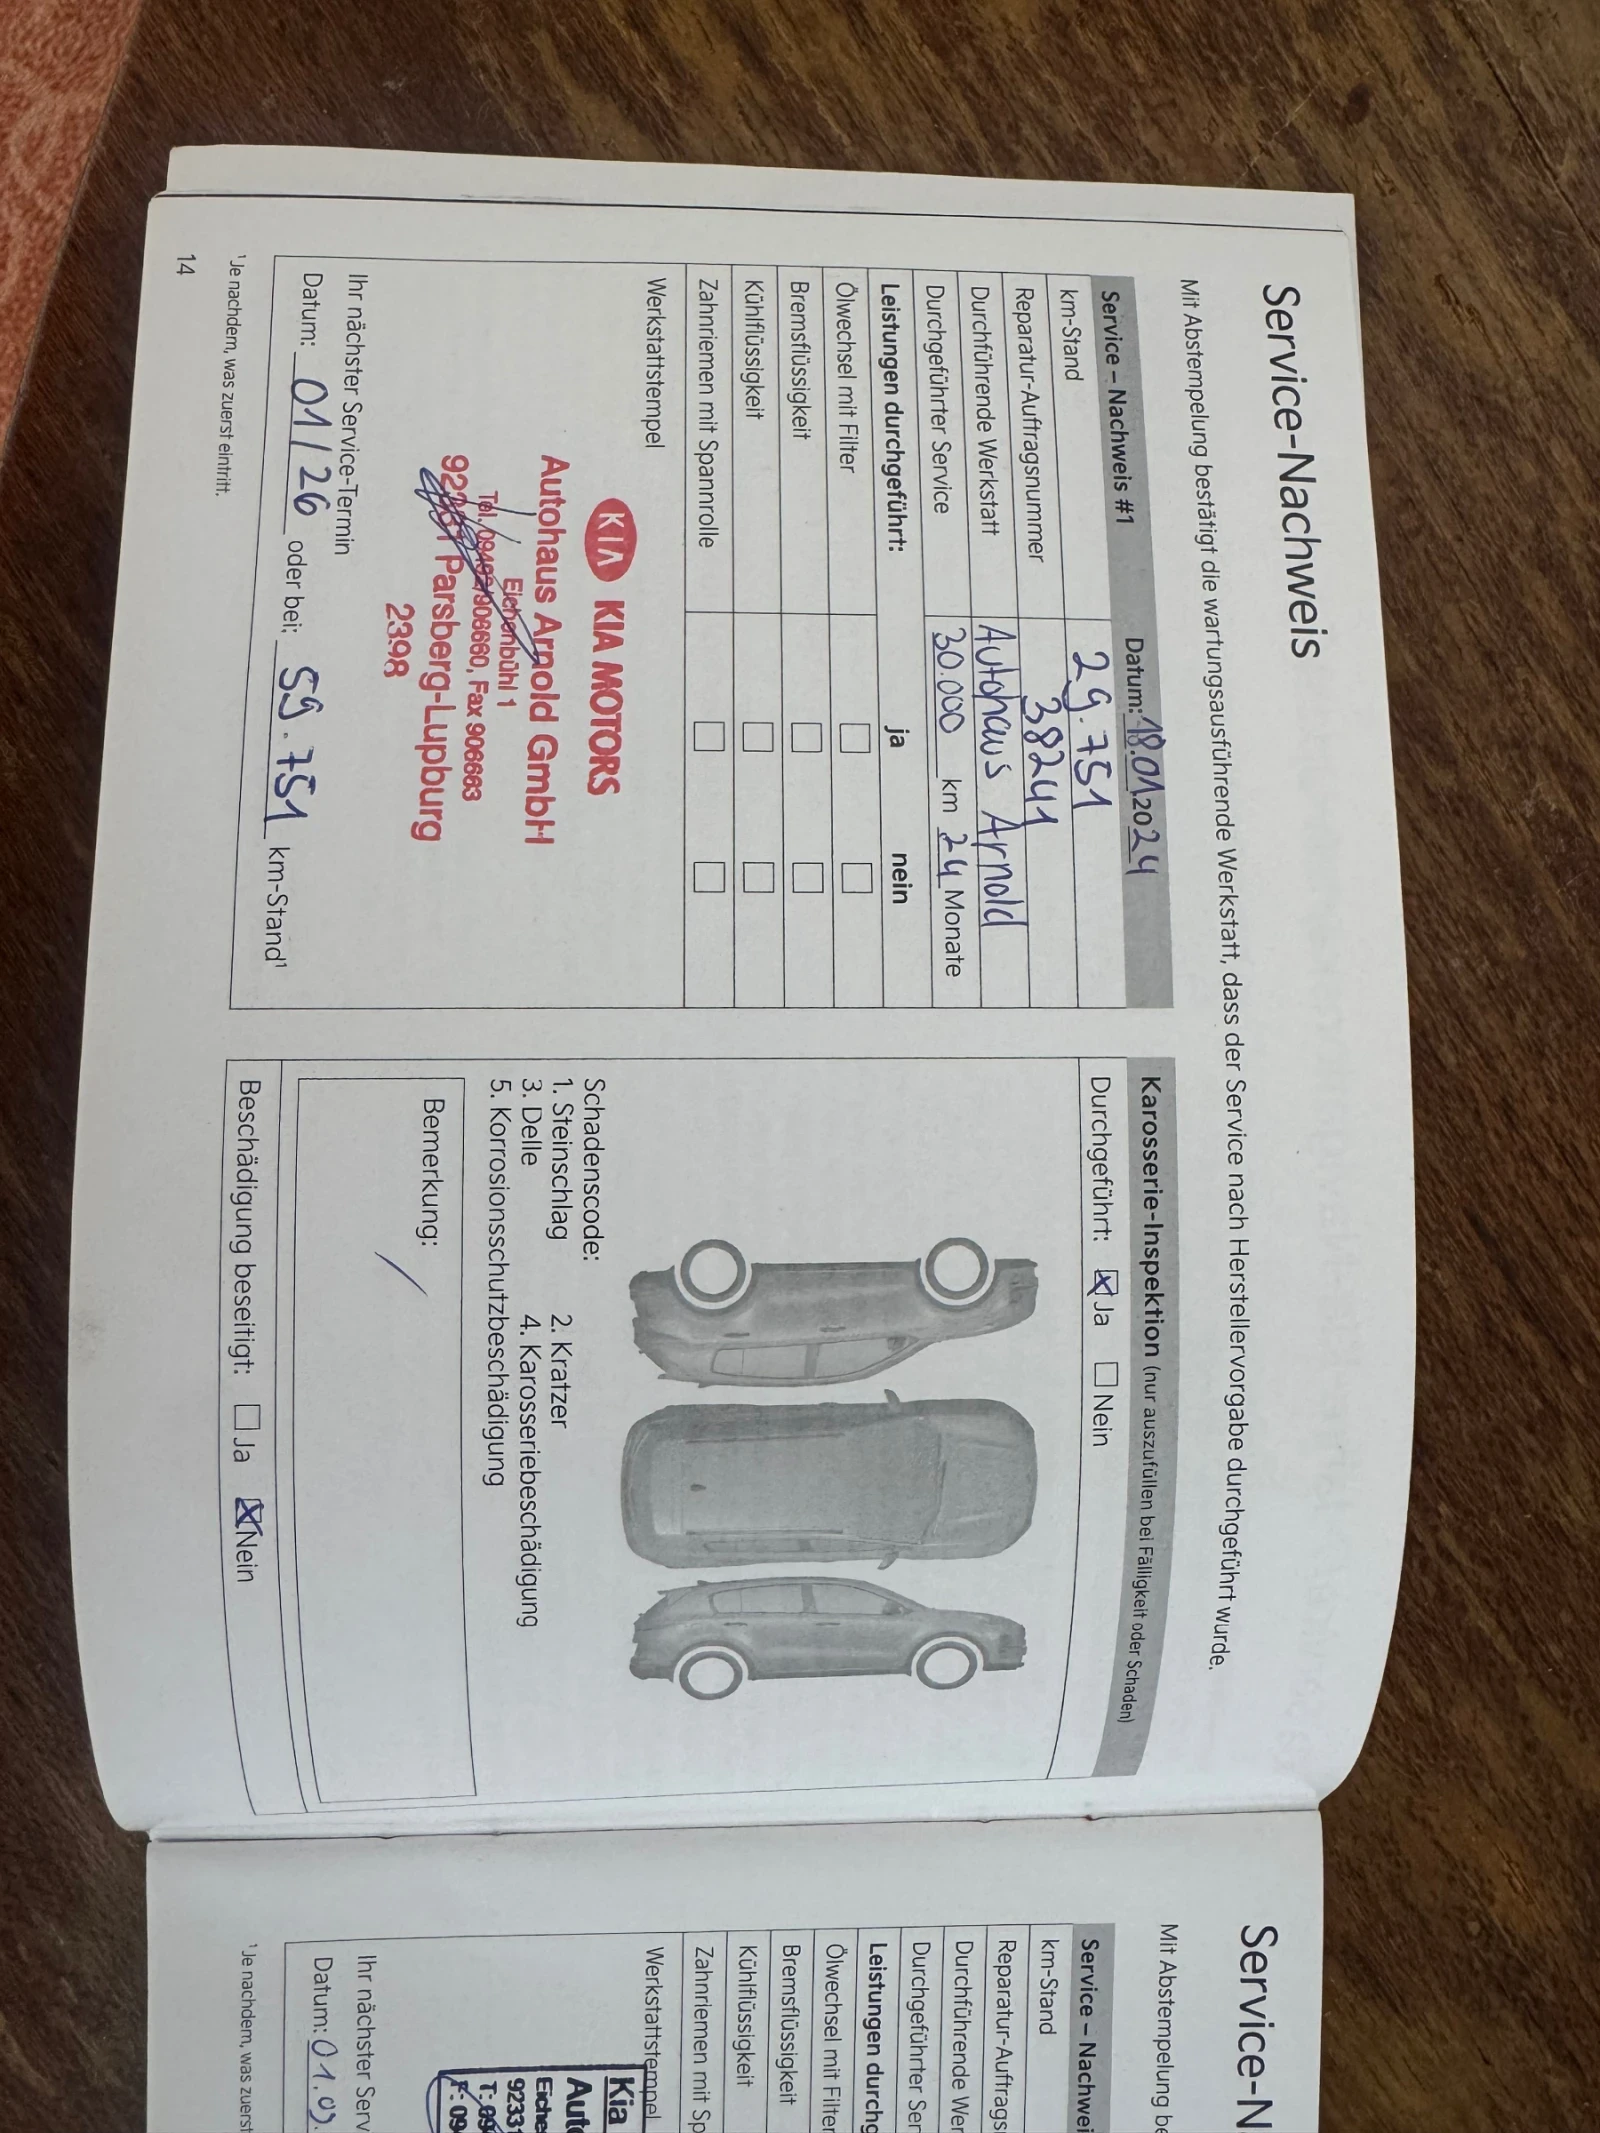 Service-Nachweis
Mit Abstempelung bestätigt die wartungsausführende Werkstatt, dass der Service nach Herstellervorgabe durchgeführt wurde.
Service – Nachweis #1 Datum: 18.01.2024
km-Stand 29.751
Reparatur-Auftragsnummer 38241
Durchführende Werkstatt Autohaus Arnold
Durchgeführter Service 30.000 km 24 Monate
Leistungen durchgeführt: ja nein
Ölwechsel mit Filter
Bremsflüssigkeit
Kühlflüssigkeit
Zahnriemen mit Spannrolle
Werkstattstempel
KIA KIA MOTORS
Autohaus Arnold GmbH
Eichenbühl 1
Tel. 09492/906660, Fax 906663
92331 Parsberg-Lupburg
2398
Ihr nächster Service-Termin
Datum: 01/26 oder bei: 59.751 km-Stand¹
¹Je nachdem, was zuerst eintritt.
14
Karosserie-Inspektion (nur auszufüllen bei Fälligkeit oder Schaden)
Durchgeführt: Ja Nein
Schadenscode:
1. Steinschlag 2. Kratzer
3. Delle 4. Karosseriebeschädigung
5. Korrosionsschutzbeschädigung
Bemerkung:
Beschädigung beseitigt: Ja Nein
Service-N
Mit Abstempelung be
Service – Nachwei
km-Stand
Reparatur-Auftrags
Durchführende Wer
Durchgeführter Ser
Leistungen durchg
Ölwechsel mit Filter
Bremsflüssigkeit
Kühlflüssigkeit
Zahnriemen mit Sp
Werkstattstempel
Kia
Auto
Eiche
9233
T: 09
F: 09
Ihr nächster Serv
Datum: 01.09.
¹Je nachdem, was zuerst